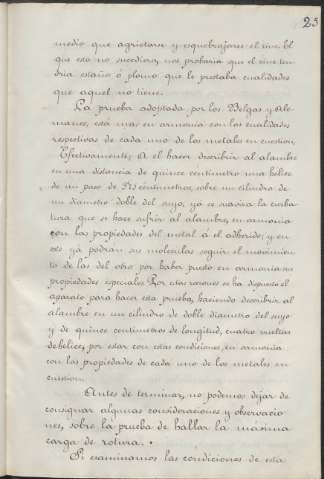 25
medio que agrietarse y esquebrajarse el zinc. El
que esto no sucediera, nos probaria que el zinc ten-
dria estaño ó plomo que le prestaba cualidades
que aquel no tiene.
La prueba adoptada por los Belgas y Ale-
manes, está mas en armonia con las cualidades
respectivas de cada uno de los metales en cuestion,
Efectivamente; A el hacer describir al alambre
en una distancia de quince centimetros una hélice
de un paso de centimetros, sobre un cilindro de
un diametro doble del suyo, yá se suaviza la curba-
tura que se hace sufrir al alambre, en armonia
con las propiedades del metal á el adherido; y en
este yá podran sus moleculas seguir el movimien-
to de las del otro por haber puesto en armonia sus
propiedades especiales. Por estas razones se ha dispuesto el
aparato para hacer esta prueba, haciendo describir al
alambre en un cilindro de doble diametro del suyo
y de quince centimetros de longitud, cuatro vueltas
de hélice, por estar con estas condiciones, en armonia
con las propiedades de cada uno de los metales en
cuestion.
Antes de terminar, no podemos dejar de
consignar algunas consideraciones y observacio
nes, sobre la prueba de hallar la máxima
carga de rotura.
Si examinamos las condiciones de esta